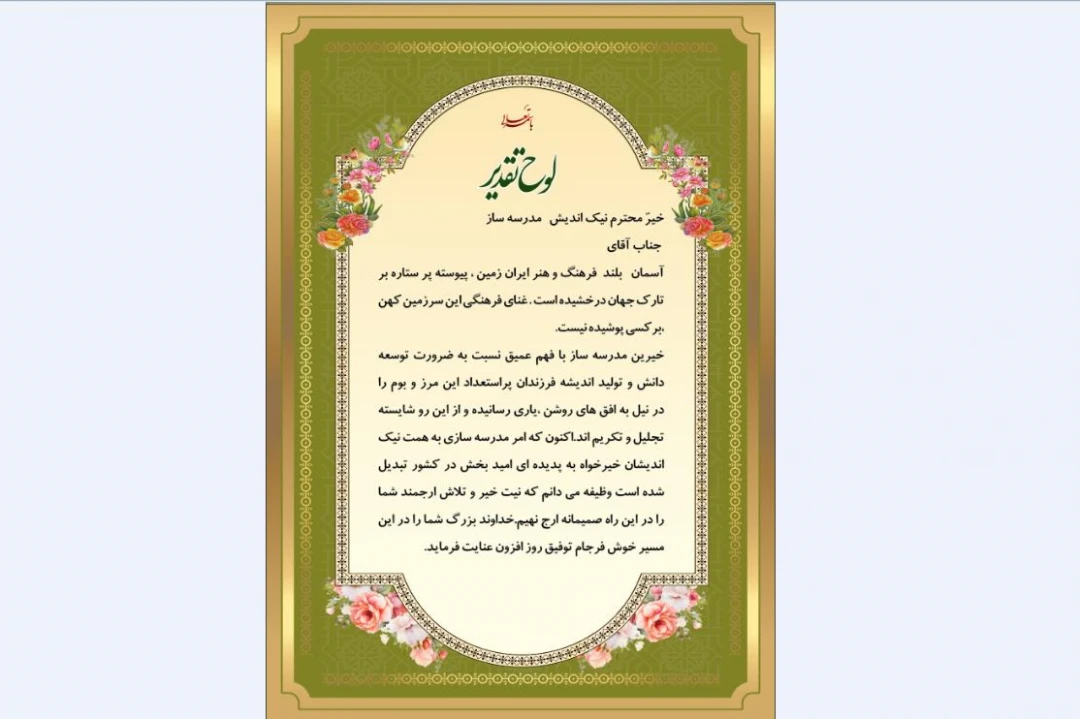 باسمه تعالی
لوح تقدیر
خیرّ محترم نیک اندیش مدرسه ساز
جناب آقای
آسمان بلند فرهنگ و هنر ایران زمین ، پیوسته پر ستاره بر
تارک جهان درخشیده است . غنای فرهنگی این سرزمین کهن
،بر کسی پوشیده نیست.
خیرین مدرسه ساز با فهم عمیق نسبت به ضرورت توسعه
دانش و تولید اندیشه فرزندان پراستعداد این مرز و بوم را
در نیل به افق های روشن ،یاری رسانیده و از این رو شایسته
تجلیل و تکریم اند.اکنون که امر مدرسه سازی به همت نیک
اندیشان خیرخواه به پدیده ای امید بخش در کشور تبدیل
شده است وظیفه می دانم که نیت خیر و تلاش ارجمند شما
را در این راه صمیمانه ارج نهیم.خداوند بزرگ شما را در این
مسیر خوش فرجام توفیق روز افزون عنایت فرماید.